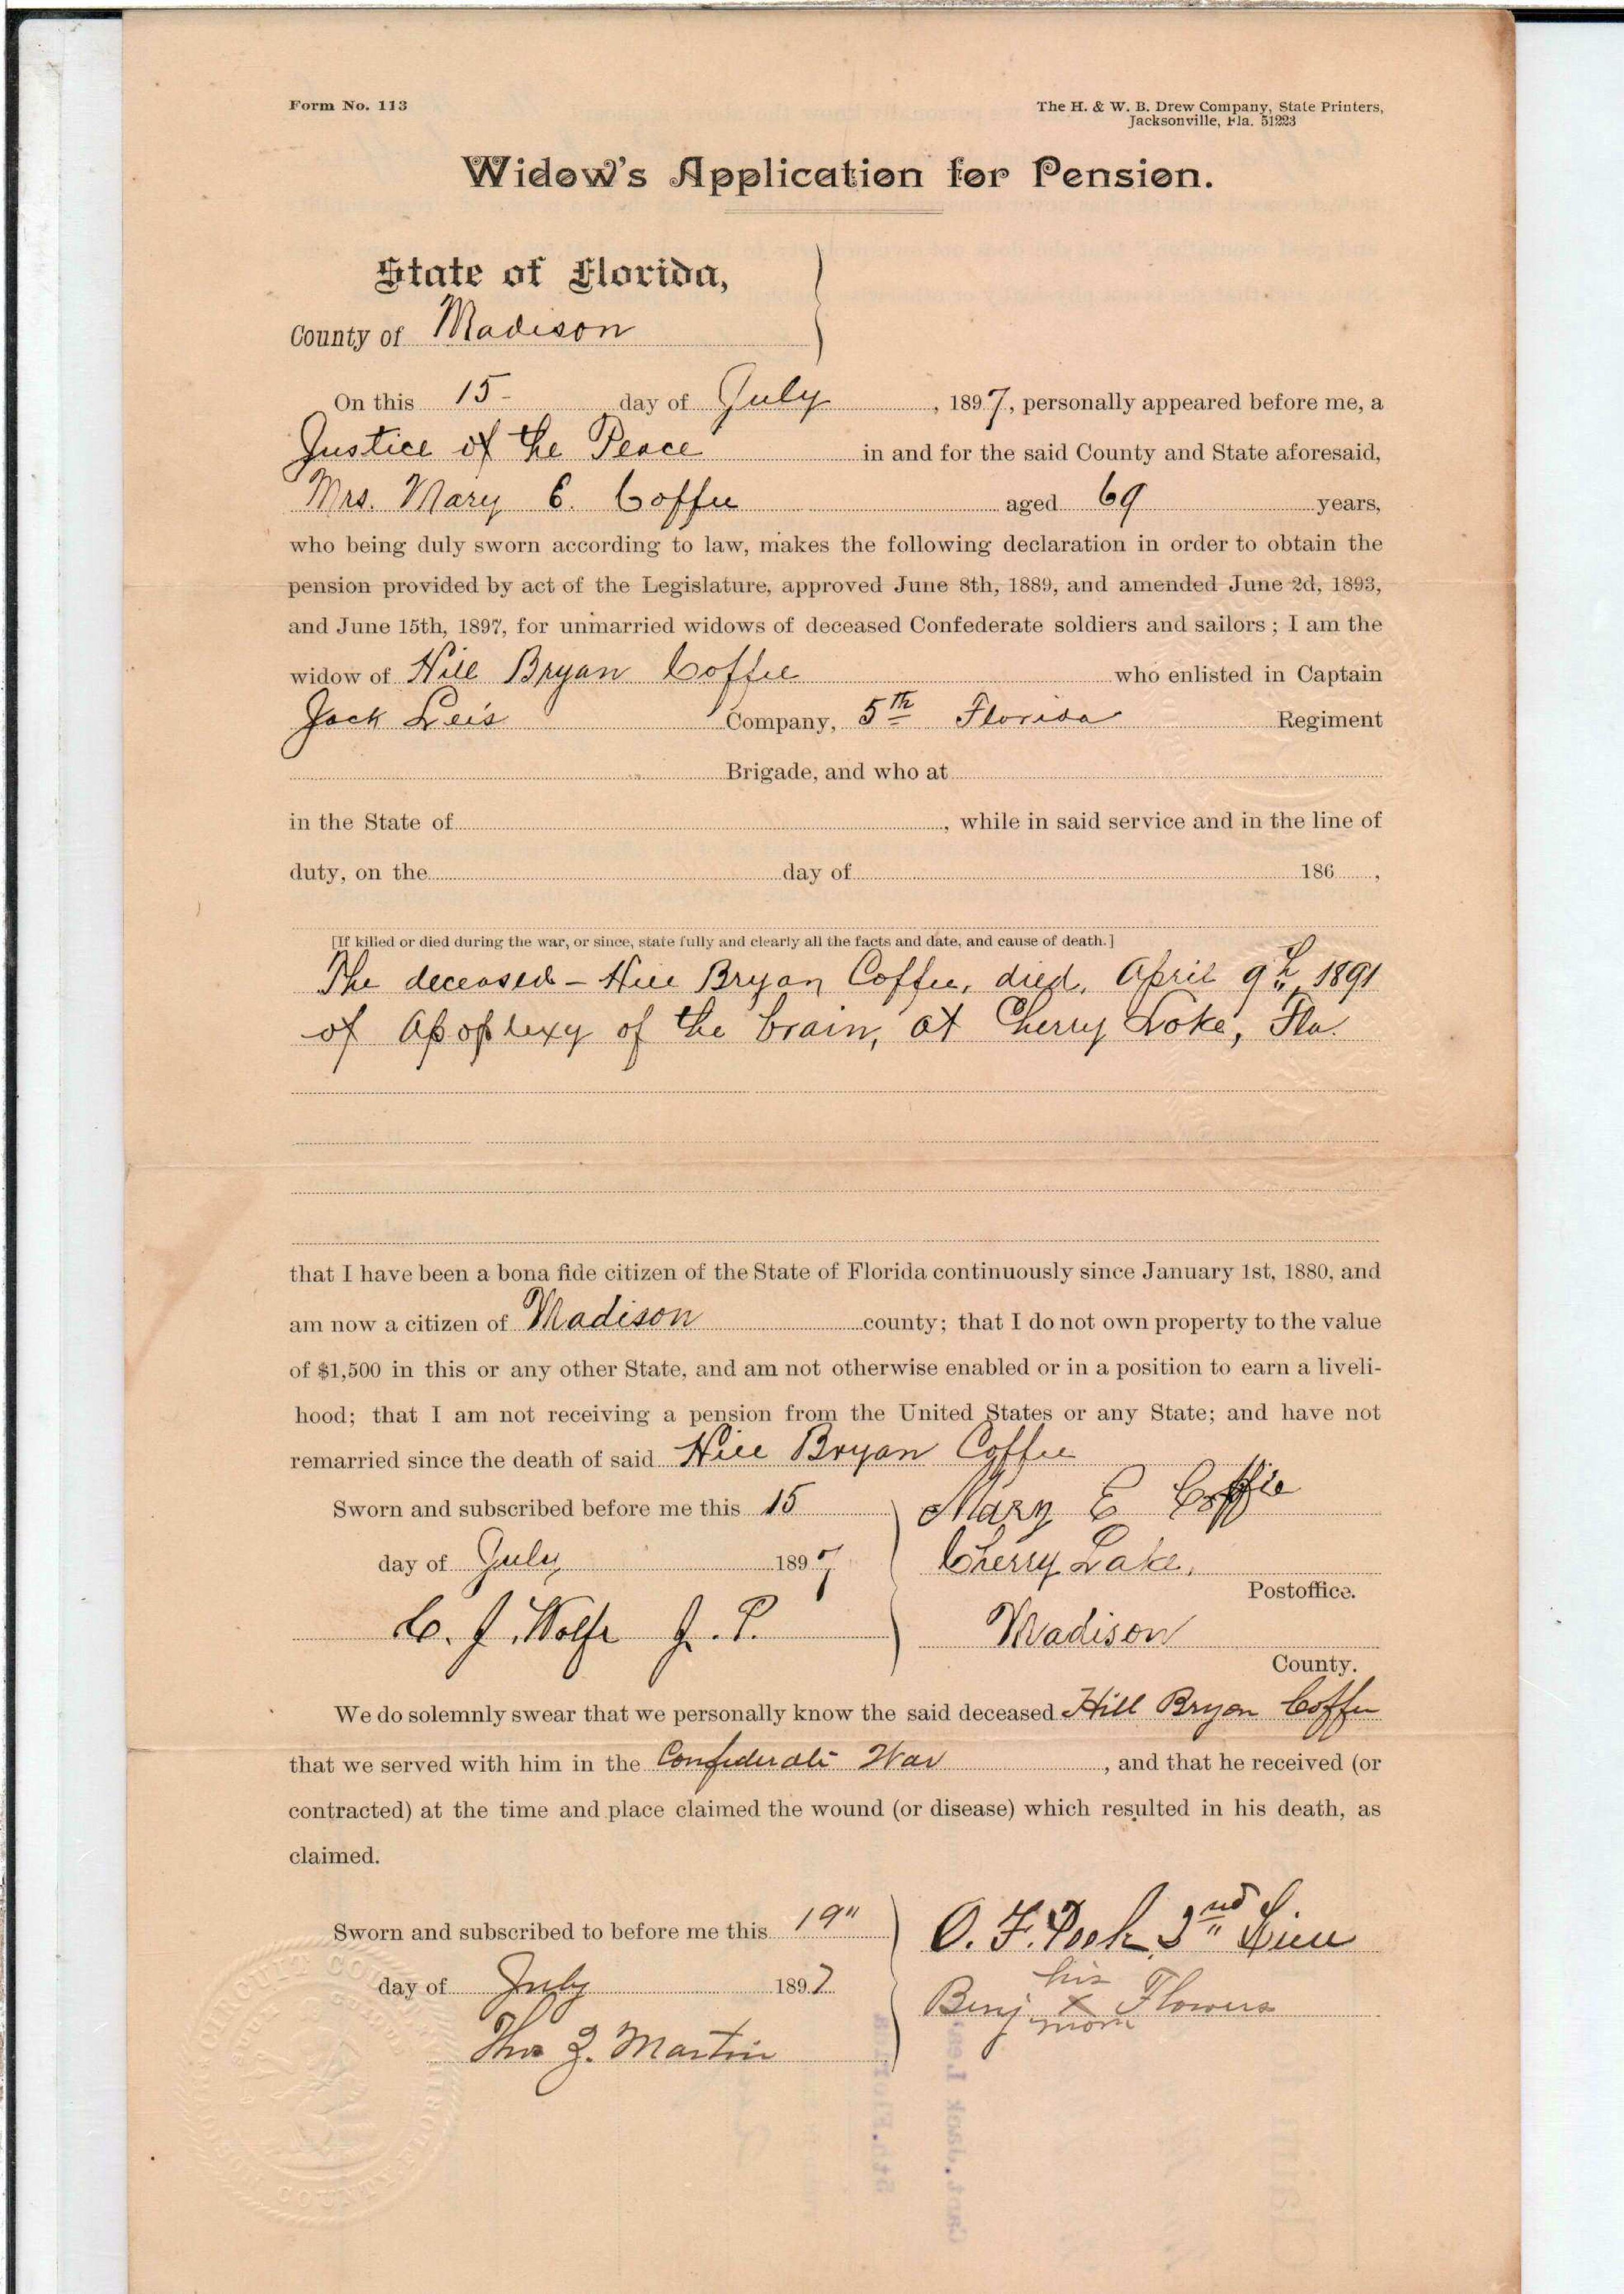 Form No. 113
The H. & W. B. Drew Company, State Printers,
Jacksonville, Fla. 51223
Widow's Application for Pension.
State of Florida,
County of Madison
On this 15- day of July, 1897, personally appeared before me, a
Justice of the Peace in and for the said County and State aforesaid,
Mrs. Mary E. Coffee aged 69 years,
who being duly sworn according to law, makes the following declaration in order to obtain the
pension provided by act of the Legislature, approved June 8th, 1889, and amended June 2d, 1893,
and June 15th, 1897, for unmarried widows of deceased Confederate soldiers and sailors; I am the
widow of Hill Bryan Coffee who enlisted in Captain
Jack Leis Company, 5th Florida Regiment
Brigade, and who at
in the State of, while in said service and in the line of
duty, on the day of 186,
[If killed or died during the war, or since, state fully and clearly all the facts and date, and cause of death.]
The deceased - Hill Bryan Coffee, died, April 9th, 1891
of Apoplexy of the brain, at Cherry Lake, Fla.
that I have been a bona fide citizen of the State of Florida continuously since January 1st, 1880, and
am now a citizen of Madison county; that I do not own property to the value
of $1,500 in this or any other State, and am not otherwise enabled or in a position to earn a liveli-
hood; that I am not receiving a pension from the United States or any State; and have not
remarried since the death of said Hill Bryan Coffee
Sworn and subscribed before me this 15 Mary E Coffie
day of July 1897 Cherry Lake,
Postoffice.
C. J. Wolfe J. P. Madison
County.
We do solemnly swear that we personally know the said deceased Hill Bryan Coffee
that we served with him in the Confederate War, and that he received (or
contracted) at the time and place claimed the wound (or disease) which resulted in his death, as
claimed.
Sworn and subscribed to before me this 19" O. F. Peek 2nd Lieu
day of July 1897 his
Benj X Flowers
mark
Thos Z. Martin